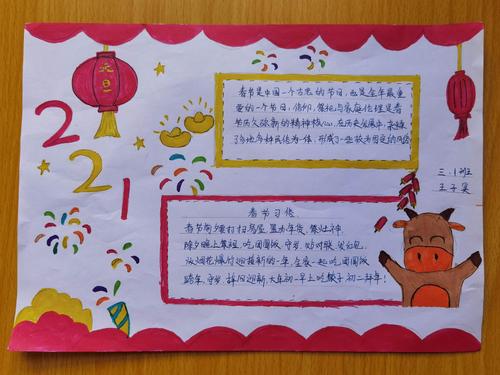 元
旦
2
2
1
春节是中国一个古老的节日,也是全年最重
要的一个节日,信仰、
与家庭伦理是春
节历久弥新的精神核心,在历史发展中,
了
多种民俗为一体,形成了一些较为固定的风俗
三.1班
王子昊
春节习俗
春节前夕要打扫房屋置办年货,祭灶神,
除夕晚上
,吃团圆饭守岁,贴对联,发红包,
放烟花爆竹迎接新的一年,全家一起吃团圆饭
守岁,辞旧迎新,大年初一早上吃饺子初二拜年!